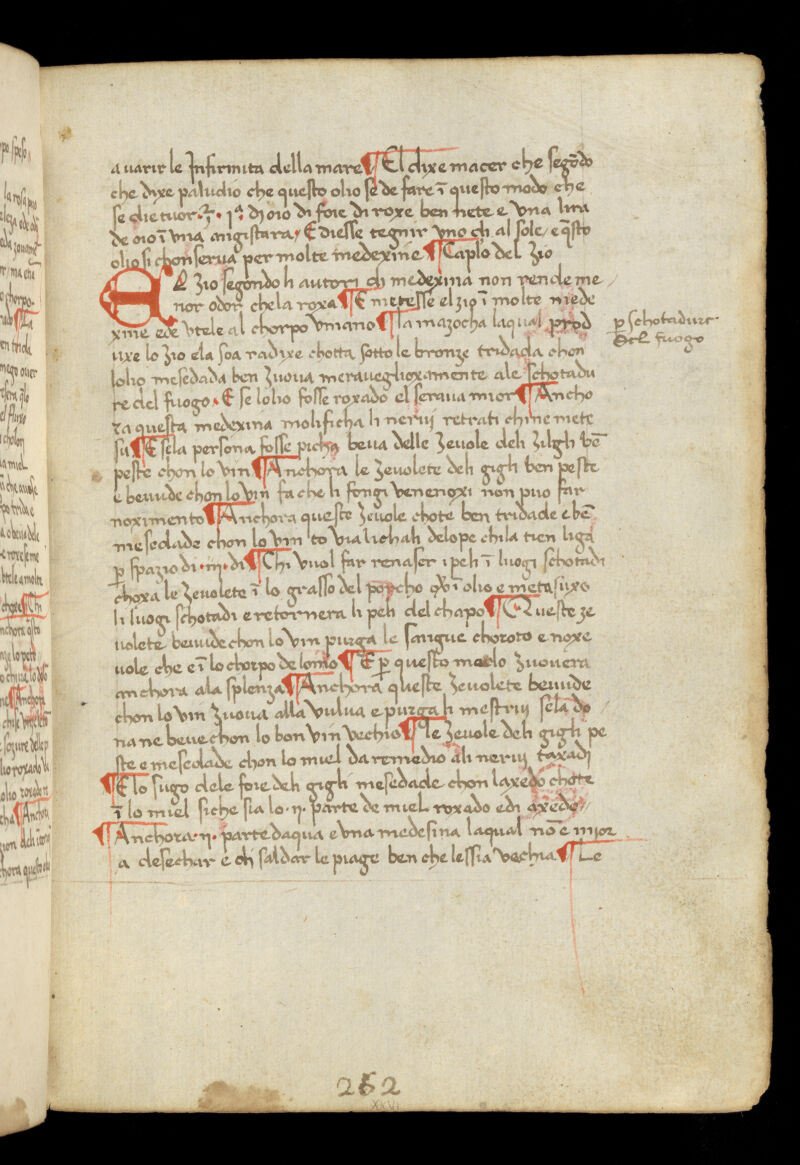 a varir le Infirmita della mare ¶ El dixe macer che segōdo
che dixe paludio che questo olio se de fare ī questo modo che
se die tuor ℥ · 1ª · di oio di foie di roxe ben nete e una lira
de oio ī una angistara · E diesse tegnir uno di al sole / e q̄sto
olio si chonserva per molte medexine ¶ Capło del zio
EL zio segondo li autori di medexina non rende me
nor odor che la roxa ¶ E metesse el zio ī molte mede
xine ed e utele al chorpo umano ¶ la mazocha laqual prod
uxe lo zio e la soa radixe chotta sotto le bronze tridada chon
lolio mesedada ben zuova meraveglioxamente ale schotadu
re del fuogo · E se lolio fosse roxado el serava mior ¶ Ancho
ra questa medexina molificha li nervi retrati chi ne mete
su ¶ E se la persona fosse beva delle zevole deli zilgli bē
peste chon lo vin ¶ Anchora le zevolete deli gigli ben peste
e bevude chon lo vin fa che li fongi venenoxi non puo far
noximento ¶ Anchora queste zevole chote ben tridade e bē
mesedade chon lo vin to via li chali delope chi la tien liga
p̄ spazio di · iii · di ¶ Chi vuol far renaser i peli ī luogi schotadi
choxa le zevolete ī lo grasso del porcho ī olio e meta suxo
li luogi schotadi e retornera li peli del chapo ¶ Queste ze
volete bevude chon lo vin purga le sangue choroto e noxe
vole che e ī lo chorpo de lomo ¶ E p̄ questo modo zuovera
anchora ala splenza ¶ Anchora queste zevolete bevude
chon lo vin zuova alla vulva e purga li mestrui se la do
na ne beve chon lo bon vin vechio ¶ le zevole deli gigli pe
ste e mesedade chon lo miel da remedio ali nervi taxadi
¶ E lo sugo dele foie deli gigli mesedade chon laxedo chote
ī lo miel siche sia lo · ii · parte de miel roxado e di axedo
¶ Anchora · ii · parte daqua e una medesina laqual nō e mior
a desechar e di saldar le piage ben che le ssia vechia ¶ Le
p̄ schotadure
del fuogo
262
XXVI